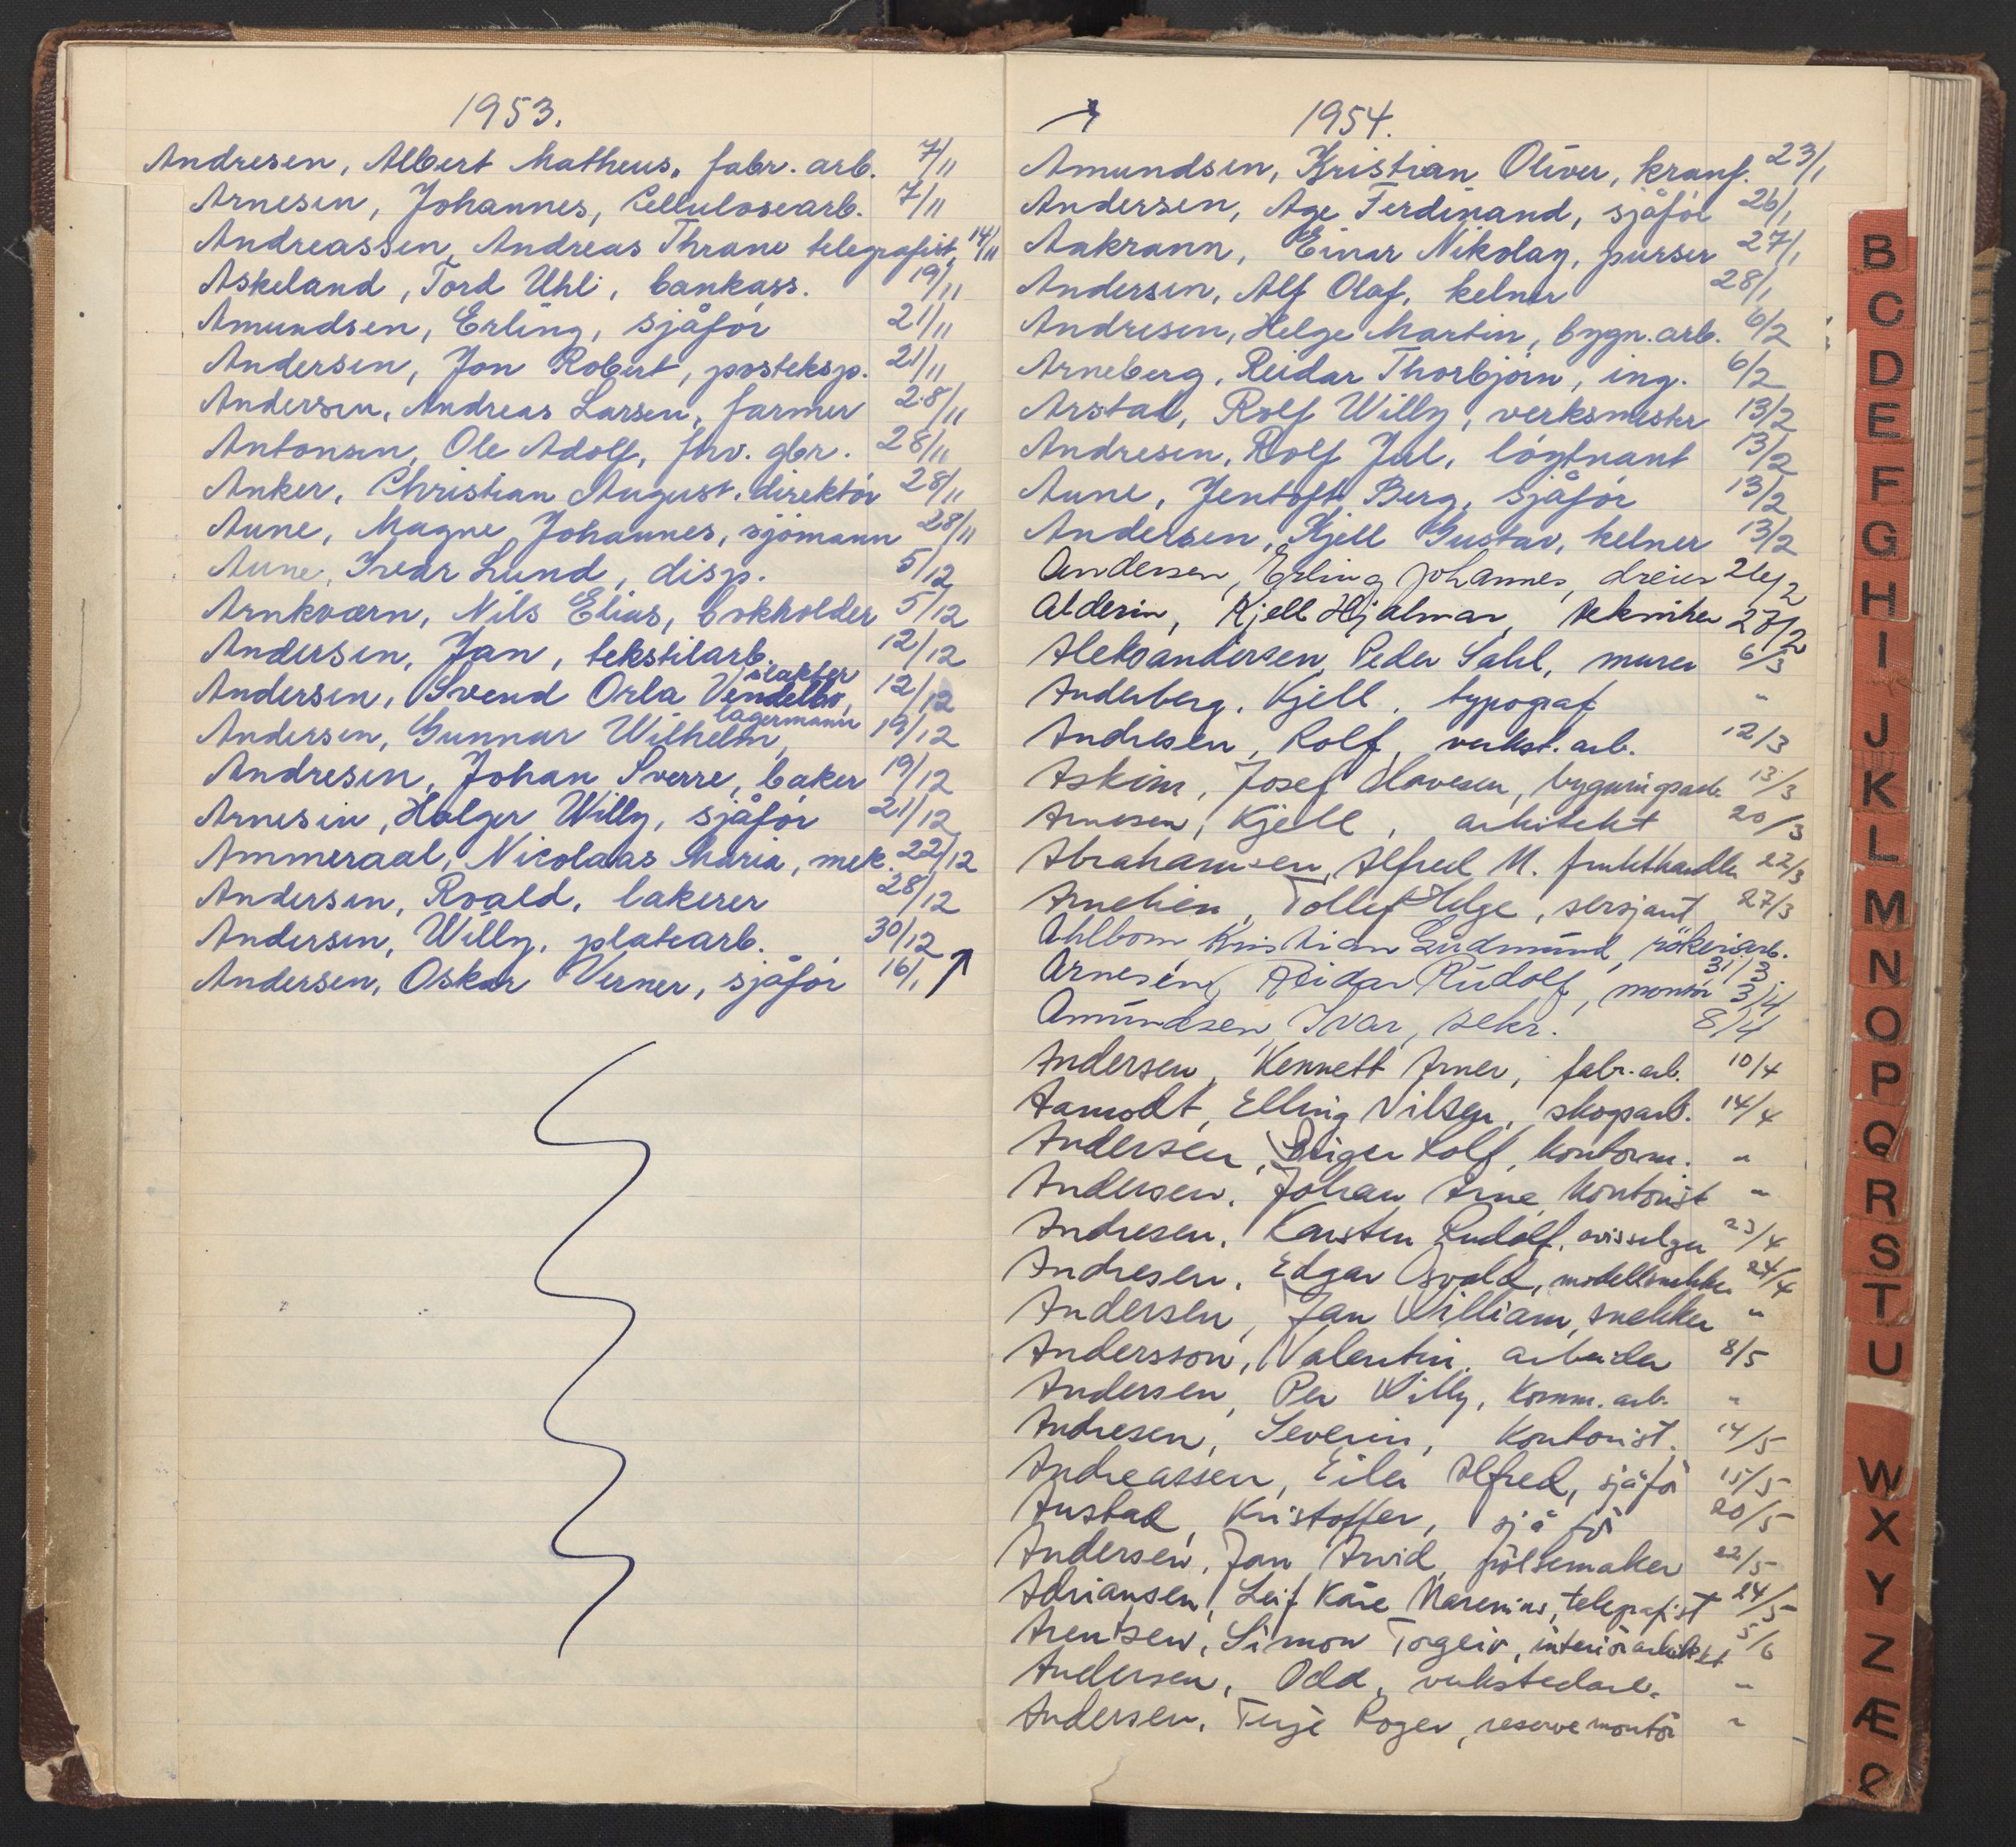 1953.
Andresen, Albert Matheus, fabr. arb. 7/11
Arnesen, Johannes, Cellulosearb. 7/11
Andreassen, Andreas Thrane telegrafist, 14/11
Askeland, Tord Uhli, bankass. 19/11
Amundsen, Erling, sjåfør 21/11
Andersen, Jon Robert, posteksp. 21/11
Andersen, Andreas Larsen, farmer 28/11
Antonsen, Ole Adolf, frv. gbr. 28/11
Anker, Christian August, direktør 28/11
Aune, Magne Johannes, sjömann 28/11
Aune, Ivar Lund, disp. 5/12
Arnkværn, Nils Elias, bokholder 5/12
Andersen, Jan, tekstilarb. 12/12
Andersen, Svend Orla Vendelbo, slakter 12/12
Andersen, Gunnar Wilhelm, lagermann 19/12
Andresen, Johan Sverre, baker 19/12
Arnesen, Holger Willy, sjåfør 21/12
Ammeraal, Nicolaas Maria, mek. 22/12
Andersen, Roald, lakerer 28/12
Andersen, Willy, platearb. 30/12
Andersen, Oskar Verner, sjåfør 16/1
1954.
Amundsen, Kristian Oliver, kranf. 23/1
Andersen, Age Ferdinand, sjåfør 26/1
Aakrann, Einar Nikolay, purser 27/1
Andersen, Alf Olaf, kelner 28/1
Andresen, Helge Martin, bygn. arb. 6/2
Arneberg, Reidar Thorbjørn, ing. 6/2
Arstad, Rolf Willy, verksmester 13/2
Andresen, Rolf Jul, löytnant 13/2
Aune, Jentoft Berg, sjåfør 13/2
Andersen, Kjell Gustav, kelner 13/2
Andersen, Erling Johannes, dreier 26/2
Alderin, Kjell Hjalmar, tekniker 27/2
Aleksandersen, Peder Sahl, murer 6/3
Anderberg, Kjell, typograf "
Andresen, Rolf, verkst. arb. 12/3
Askim, Josef Olavesen, bygningsarb. 13/3
Arnesen, Kjell, arkitekt 20/3
Abrahamsen, Alfred M. frukthandler 22/3
Arnehein, Tollef Helge, sersjant 27/3
Ahlbom, Kristian Gudmund, rökeriarb. 31/3
Arnesen, Reidar Rudolf, montör 3/4
Amundsen, Ivar, sekr. 8/4
Andersen, Kennett Arner, fabr. arb. 10/4
Aamodt, Elling Nilsen, skogsarb. 14/4
Andersen, Birger Rolf, kontorm. "
Andersen, Johan Arne, kontorist "
Andresen, Karsten Rudolf, avisselger 23/4
Andresen, Edgar Osvald, modellsnekker 24/4
Andersen, Jan William, snekker "
Andersson, Valentin, arbeider 8/5
Andersen, Per Willy, komm. arb. "
Andresen, Severin, kontorist. 14/5
Andreassen, Eiler Alfred, sjåfør 15/5
Austad, Kristoffer, sjåfør 20/5
Andersen, Jan Arvid, pölsemaker 22/5
Adriansen, Leif Kåre Marenius, telegrafist 24/5
Arentsen, Simon Torgeir, interiörarkitekt 5/6
Andersen, Odd, verkstedarb. "
Andersen, Terje Roger, reservemontör "
B
C
D
E
F
G
H
I
J
K
L
M
N
O
P
Q
R
S
T
U
W
X
Y
Z
Æ